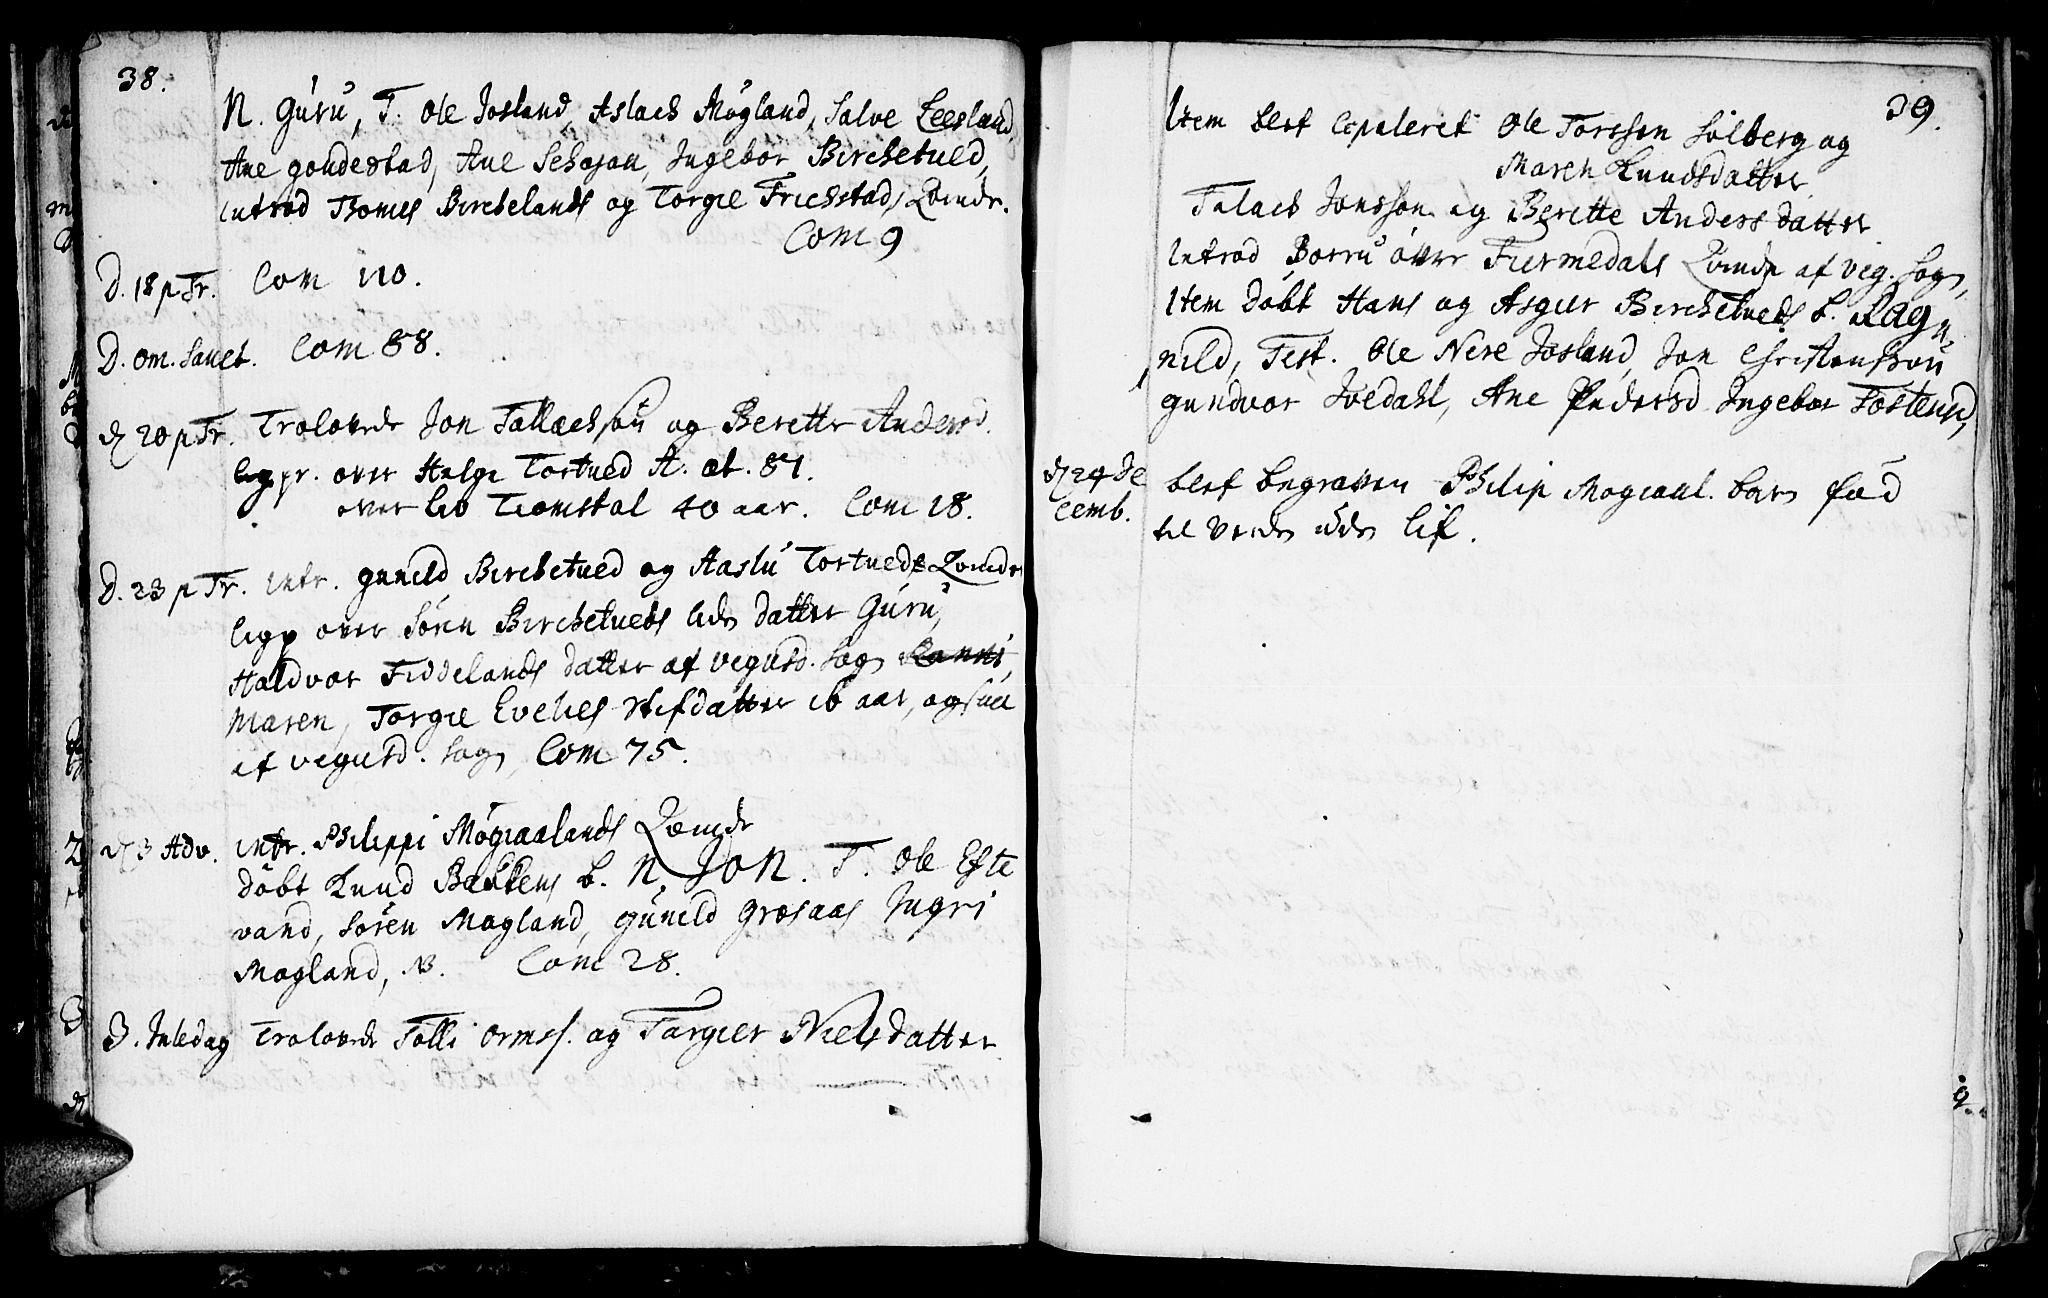 38.
N. Guru, T. Ole Josland, Aslach Mögland, Salve Leesland,
Ane gondestad, Ane Ingebor Birchetued,
introd Thomes Birchelands og Torgie Frichstads Qvinde.
Com 9
D. 18 p Tr. Com 110.
D. om. Sanct. Com 88.
d 20 p Tr. Trolovede Jon Tallachsøn og Berette Andersd.
ligpr. over Helge Tortued A. æt. 81.
over liv Tiomstøl 40 aar. Com 18.
D. 23 p Tr. intr. gunild Birchetued og Aaslu Tortueds Qvinder
ligp over Sören Birchetueds lide datter Guru,
Haldvor Fiddelands datter af vegusd. Sogn
Maren, Torgie Evehes stifdatter 16 aar, ogsaa
af vegusd. Sogn, Com 75.
d 3 Adv. intr. Philippi Mögiaalands Qvinde
döbt Knud Bakkens b. N. JON. T. Ole Efte
vand, Sören Mogland, gunild grosaas Ingri
Mogland, NB. Com 28.
3. Juledag Trolovede Tolli ormss. og Targier Nielsdatter
39.
Item blef Copuleret Ole Torssøn Solberg og
Maren Knudsdatter
Talach Jonssøn og Berette Andersdatter
introd Borru över Fiermedals Qvinde af veg. Sogn,
Item döbt Hans og Asgier Birchetueds b. Rag
nild, Test. Ole Nere Josland, Jon Christensøn
gundvor Ivedahl, Ane Pedersd Ingebor Tostensd,
d 24 De
cemb. blef begraven Philip Mogiaal. barn fød
til Verden uden lif.